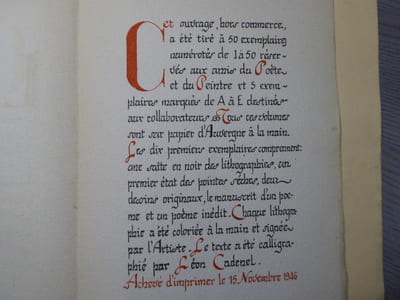 Cet ouvrage, hors commerce,
a été tiré à 50 exemplaires
numérotés de 1 à 50 réser-
vés aux amis du Poète
et du Peintre et 5 exem-
plaires marqués de A à E destinés
aux collaborateurs Tous ces volumes
sont sur papier d'Auvergne à la main.
Les dix premiers exemplaires comprennent:
une suite en noir des lithographies, un
premier état des pointes sèches, deux
dessins originaux, le manuscrit d'un poe-
me et un poème inédit. Chaque lithogra-
phie a été coloriée à la main et signée
par l'Artiste. Le texte a été calligra-
phié par Léon Cadenel.
Achevé d'imprimer le 15 Novembre 1946